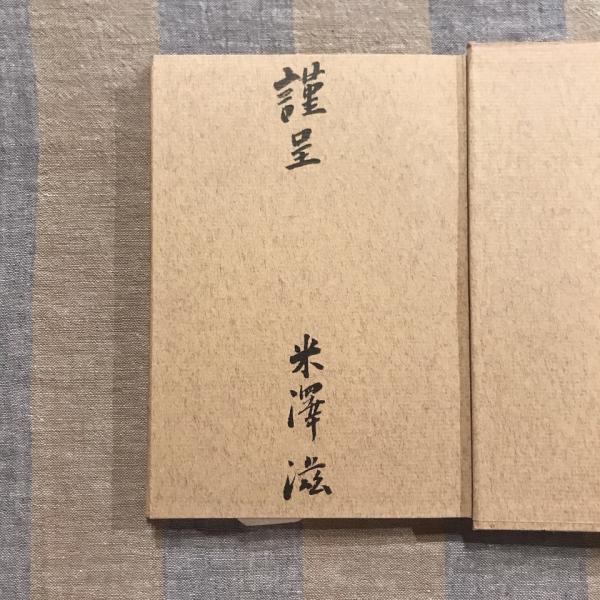 謹呈
米澤滋